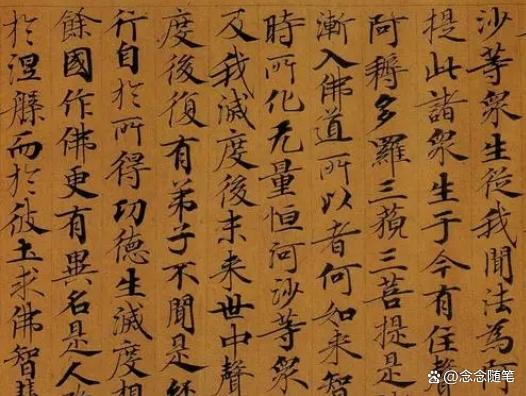 沙等眾生從我聞法為阿
提此諸眾生于今有住聲
阿耨多羅三藐三菩提是
漸入佛道所以者何如來智
時所化无量恒河沙等眾
及我滅度後未來世中聲
度後復有弟子不聞是經
行自於所得功德生滅度想
餘國作佛更有異名是人
於涅槃而於彼土求佛智慧
@念念随笔